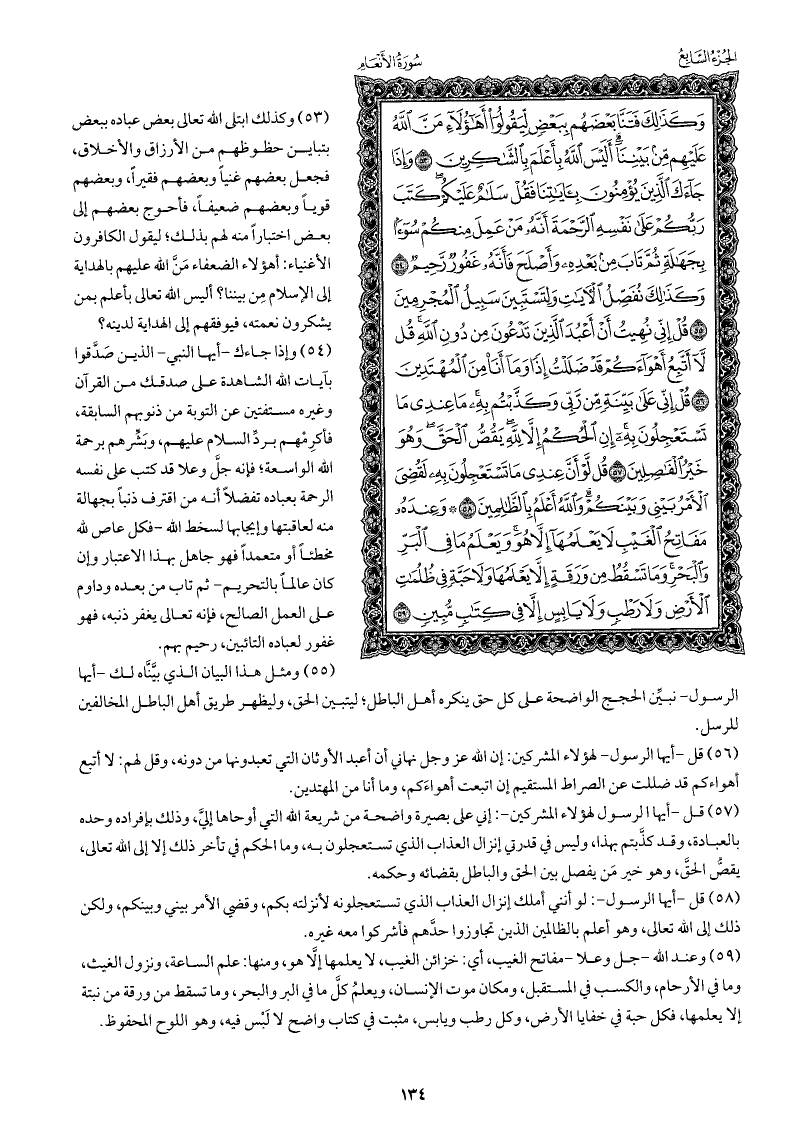 الجزء السابع
سورة الأنعام
وَكَذَٰلِكَ فَتَنَّا بَعْضَهُم بِبَعْضٍ لِّيَقُولُوٓا۟ أَهَٰٓؤُلَآءِ مَنَّ ٱللَّهُ
عَلَيْهِم مِّنۢ بَيْنِنَآ ۗ أَلَيْسَ ٱللَّهُ بِأَعْلَمَ بِٱلشَّٰكِرِينَ ٥٣ وَإِذَا
جَآءَكَ ٱلَّذِينَ يُؤْمِنُونَ بِـَٔايَٰتِنَا فَقُلْ سَلَٰمٌ عَلَيْكُمْ ۖ كَتَبَ
رَبُّكُمْ عَلَىٰ نَفْسِهِ ٱلرَّحْمَةَ ۖ أَنَّهُۥ مَنْ عَمِلَ مِنكُمْ سُوٓءًۢا
بِجَهَٰلَةٍ ثُمَّ تَابَ مِنۢ بَعْدِهِۦ وَأَصْلَحَ فَأَنَّهُۥ غَفُورٌ رَّحِيمٌ ٥٤
وَكَذَٰلِكَ نُفَصِّلُ ٱلْـَٔايَٰتِ وَلِتَسْتَبِينَ سَبِيلُ ٱلْمُجْرِمِينَ
٥٥ قُلْ إِنِّى نُهِيتُ أَنْ أَعْبُدَ ٱلَّذِينَ تَدْعُونَ مِن دُونِ ٱللَّهِ ۚ قُل
لَّآ أَتَّبِعُ أَهْوَآءَكُمْ ۙ قَدْ ضَلَلْتُ إِذًا وَمَآ أَنَا۠ مِنَ ٱلْمُهْتَدِينَ
٥٦ قُلْ إِنِّى عَلَىٰ بَيِّنَةٍ مِّن رَّبِّى وَكَذَّبْتُم بِهِۦ ۚ مَا عِندِى مَا
تَسْتَعْجِلُونَ بِهِۦٓ ۚ إِنِ ٱلْحُكْمُ إِلَّا لِلَّهِ ۖ يَقُصُّ ٱلْحَقَّ ۖ وَهُوَ
خَيْرُ ٱلْفَٰصِلِينَ ٥٧ قُل لَّوْ أَنَّ عِندِى مَا تَسْتَعْجِلُونَ بِهِۦ لَقُضِىَ
ٱلْأَمْرُ بَيْنِى وَبَيْنَكُمْ ۗ وَٱللَّهُ أَعْلَمُ بِٱلظَّٰلِمِينَ ٥٨ ۞ وَعِندَهُۥ
مَفَاتِحُ ٱلْغَيْبِ لَا يَعْلَمُهَآ إِلَّا هُوَ ۚ وَيَعْلَمُ مَا فِى ٱلْبَرِّ
وَٱلْبَحْرِ ۚ وَمَا تَسْقُطُ مِن وَرَقَةٍ إِلَّا يَعْلَمُهَا وَلَا حَبَّةٍ فِى ظُلُمَٰتِ
ٱلْأَرْضِ وَلَا رَطْبٍ وَلَا يَابِسٍ إِلَّا فِى كِتَٰبٍ مُّبِينٍ ٥٩
(٥٣) وكذلك ابتلى الله تعالى بعض عباده ببعض
بتباين حظوظهم من الأرزاق والأخلاق،
فجعل بعضهم غنياً وبعضهم فقيراً، وبعضهم
قوياً وبعضهم ضعيفاً، فأحوج بعضهم إلى
بعض اختباراً منه لهم بذلك؛ ليقول الكافرون
الأغنياء: أهؤلاء الضعفاء مَنَّ الله عليهم بالهداية
إلى الإسلام مِن بيننا؟ أليس الله تعالى بأعلم بمن
يشكرون نعمته، فيوفقهم إلى الهداية لدينه؟
(٥٤) وإذا جاءك -أيها النبي- الذين صَدَّقوا
بآيات الله الشاهدة على صدقك من القرآن
وغيره مستفتين عن التوبة من ذنوبهم السابقة،
فأكرِمْهم بردِّ السلام عليهم، وبَشِّرهم برحمة
الله الواسعة؛ فإنه جلَّ وعلا قد كتب على نفسه
الرحمة بعباده تفضلاً أنه من اقترف ذنباً بجهالة
منه لعاقبتها وإيجابها لسخط الله -فكل عاص لله
مخطئاً أو متعمداً فهو جاهل بهذا الاعتبار وإن
كان عالماً بالتحريم- ثم تاب من بعده وداوم
على العمل الصالح، فإنه تعالى يغفر ذنبه، فهو
غفور لعباده التائبين، رحيم بهم.
(٥٥) ومثل هذا البيان الذي بيَّنَّاه لك -أيها
الرسول- نبيِّن الحجج الواضحة على كل حق ينكره أهل الباطل؛ ليتبين الحق، وليظهر طريق أهل الباطل المخالفين
للرسل.
(٥٦) قل -أيها الرسول- لهؤلاء المشركين: إن الله عز وجل نهاني أن أعبد الأوثان التي تعبدونها من دونه، وقل لهم: لا أتبع
أهواءكم قد ضللت عن الصراط المستقيم إن اتبعت أهواءكم، وما أنا من المهتدين.
(٥٧) قل -أيها الرسول لهؤلاء المشركين-: إني على بصيرة واضحة من شريعة الله التي أوحاها إليَّ، وذلك بإفراده وحده
بالعبادة، وقد كذَّبتم بهذا، وليس في قدرتي إنزال العذاب الذي تستعجلون به، وما الحكم في تأخر ذلك إلا إلى الله تعالى،
يقصُّ الحقَّ، وهو خير مَن يفصل بين الحق والباطل بقضائه وحكمه.
(٥٨) قل -أيها الرسول-: لو أنني أملك إنزال العذاب الذي تستعجلونه لأنزلته بكم، وقضي الأمر بيني وبينكم، ولكن
ذلك إلى الله تعالى، وهو أعلم بالظالمين الذين تجاوزوا حدَّهم فأشركوا معه غيره.
(٥٩) وعند الله -جل وعلا- مفاتح الغيب، أي: خزائن الغيب، لا يعلمها إلَّا هو، ومنها: علم الساعة، ونزول الغيث،
وما في الأرحام، والكسب في المستقبل، ومكان موت الإنسان، ويعلمُ كلَّ ما في البر والبحر، وما تسقط من ورقة من نبتة
إلا يعلمها، فكل حبة في خفايا الأرض، وكل رطب ويابس، مثبت في كتاب واضح لا لَبْس فيه، وهو اللوح المحفوظ.
١٣٤